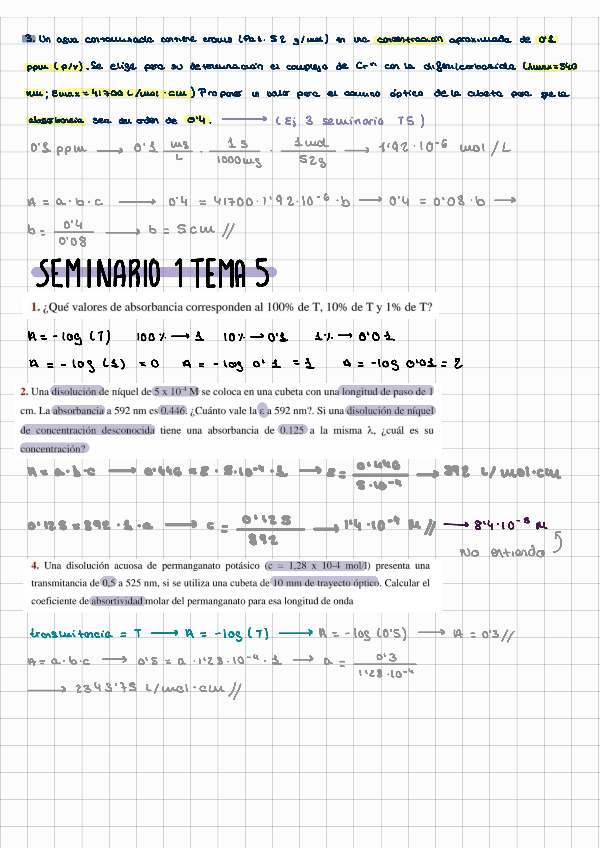 3. Un agua contaminada contiene cromo (Pat. 52 g/mol) en una concentración aproximada de 0'1
ppm (p/v). Se elige para su determinación el complejo de Cr⁺⁶ con la difenilcarbazida (λmax=540
nm; Emax=41700 L/mol·cm) Proponer un valor para el camino óptico de la cubeta para que la
absorbancia sea del orden de 0'4. → (Ej 3 seminario T5)
0'1 ppm → 0'1 mg/L · 1g/1000mg · 1mol/52g → 1'92·10⁻⁶ mol/L
A = a·b·c → 0'4 = 41700·1'92·10⁻⁶·b → 0'4 = 0'08·b →
b = 0'4/0'08 → b = 5cm //
SEMINARIO 1 TEMA 5
1. ¿Qué valores de absorbancia corresponden al 100% de T, 10% de T y 1% de T?
A = -log (T) 100% → 1 10% → 0'1 1% → 0'01
A = -log (1) = 0 A = -log 0'1 = 1 A = -log 0'01 = 2
2. Una disolución de níquel de 5 x 10⁻⁴ M se coloca en una cubeta con una longitud de paso de 1
cm. La absorbancia a 592 nm es 0.446. ¿Cuánto vale la ε a 592 nm?. Si una disolución de níquel
de concentración desconocida tiene una absorbancia de 0.125 a la misma λ, ¿cuál es su
concentración?
A = a·b·c → 0'446 = ε·5·10⁻⁴·1 → ε = 0'446/5·10⁻⁴ → 892 L/mol·cm
0'125 = 892·1·c → c = 0'125/892 → 1'4·10⁻⁴ M // → 8'4·10⁻⁵ M
No entiendo
4. Una disolución acuosa de permanganato potásico (c = 1,28 x 10-4 mol/l) presenta una
transmitancia de 0,5 a 525 nm, si se utiliza una cubeta de 10 mm de trayecto óptico. Calcular el
coeficiente de absortividad molar del permanganato para esa longitud de onda
transmitancia = T → A = -log (T) → A = -log (0'5) → A = 0'3 //
A = a·b·c → 0'5 = a·1'28·10⁻⁴·1 → a = 0'3/1'28·10⁻⁴
→ 2343'75 L/mol·cm //